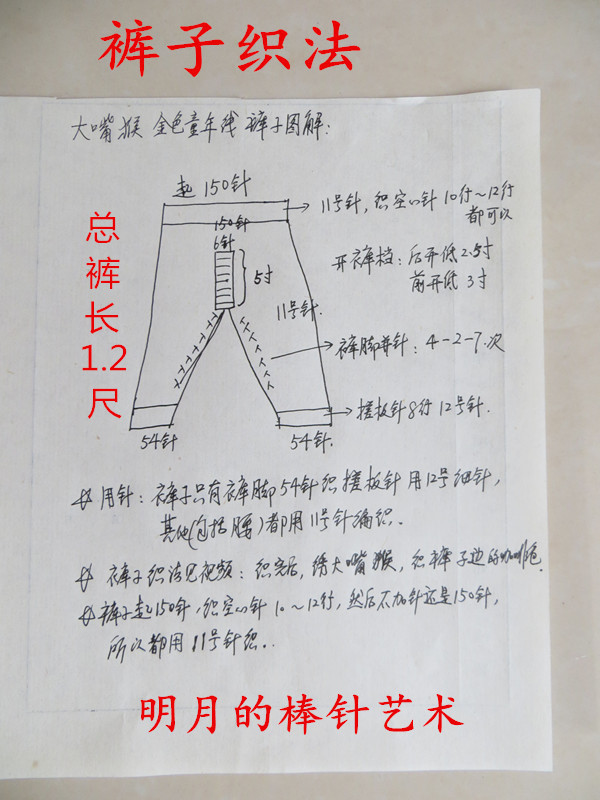 裤子织法
大嘴猴 金色童年线 裤子图解:
起150针
11号针,织空心针 10行~12行
都可以
150针
6针
5寸
11号针.
开裤档:后开低2.5寸
前开低 3寸
总裤长1.2尺
裤脚并针:4-2-7次
搓板针8行 12号针.
54针
54针.
用针:裤子只有裤脚54针织搓板针 用12号细针,
其他(包括腰)都用11号针编织.
裤子织法见视频:织完后,绣大嘴猴,织裤子边的咖啡色.
裤子起150针,织空心针10~12行,然后不加针还是150针,
所以都用11号针织..
明月的棒针艺术